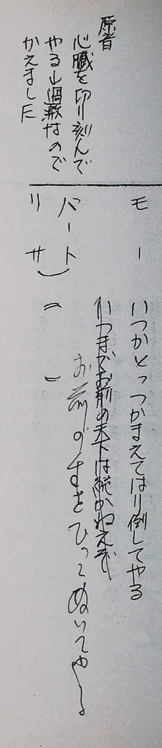 モー いつかとっつかまえてはり倒してやる
いつまでお前の天下は続かねえぞ
バート) お前の すをひっこぬいてやる
リサ) 〃
原音
心臓を切り刻んで
やる ⇐ 過激なので
かえました